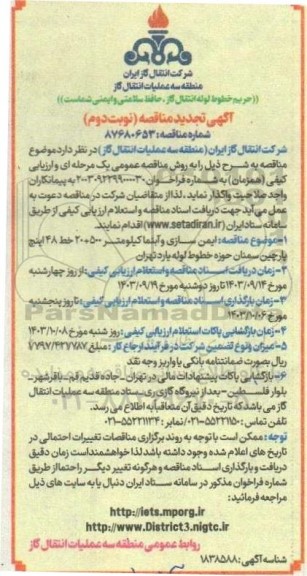 شرکت انتقال گاز ایران
منطقه سه عملیات انتقال گاز
((حریم خطوط لوله انتقال گاز ، حافظ سلامتی و ایمنی شماست))
آگهی تجدید مناقصه (نوبت دوم)
شماره مناقصه: ۸۷۶۸۰۶۵۳
شرکت انتقال گاز ایران (منطقه سه عملیات انتقال گاز) در نظر دارد موضوع
مناقصه به شرح ذیل را به روش مناقصه عمومی یک مرحله ای و ارزیابی
کیفی (همزمان) به شماره فراخوان ۲۰۰۳۰۹۲۲۹۹۰۰۰۰۳۰ به پیمانکاران
واجد صلاحیت واگذار نماید . لذا از متقاضیان شرکت در مناقصه دعوت به
عمل می آید جهت دریافت اسناد مناقصه و استعلام ارزیابی کیفی از طریق
سامانه ستاد ایران (www.setadiran.ir) اقدام نمایند.
۱-موضوع مناقصه: ایمن سازی و آبنما کیلومتر ۵۰۰+۲۰ خط ۴۸ اینچ
پارچین سمنان حوزه خطوط لوله یارد تهران
۲-زمان دریافت اسناد مناقصه و استعلام ارزیابی کیفی: از روز چهارشنبه
مورخ ۱۴۰۳/۰۹/۱۴ تا روز دوشنبه مورخ ۱۴۰۳/۰۹/۱۹
۳-زمان بارگذاری اسناد مناقصه و استعلام ارزیابی کیفی: تا روز پنجشنبه
مورخ ۱۴۰۳/۱۰/۰۶
۴-زمان بازگشایی پاکات استعلام ارزیابی کیفی: روز شنبه مورخ ۱۴۰۳/۱۰/۰۸
۵-میزان و نوع تضمین شرکت در فرآیند ارجاع کار: مبلغ ۷٬۷۹۷٬۴۳۷٬۷۸۷
ریال بصورت ضمانتنامه بانکی یا واریز وجه نقد
۶-بازگشایی پاکات پیشنهادات مالی در تهران - جاده قدیم قم - باقرشهر -
بلوار فلسطین - بعد از نیروگاه گازی ری - ستاد منطقه سه عملیات انتقال
گاز می باشد که تاریخ دقیق آن متعاقبا به اطلاع می رسد.
تلفن تماس: ۵۵۲۲۲۱۵۰-۰۲۱ نمابر: ۵۵۲۲۱۱۳۴-۰۲۱
توجه: ممکن است با توجه به روند برگزاری مناقصات تغییرات احتمالی در
تاریخ های اعلام شده وجود داشته باشد لذا خواهشمند است زمان دقیق
دریافت و بارگذاری اسناد مناقصه و هرگونه تغییر دیگر را حتما از طریق
شماره فراخوان مذکور در سامانه ستاد ایران دنبال یا به سایت های ذیل
مراجعه فرمائید:
http://iets.mporg.ir
http://www.District3.nigtc.ir
روابط عمومی منطقه سه عملیات انتقال گاز
شناسه آگهی: ۱۸۳۸۵۸۸